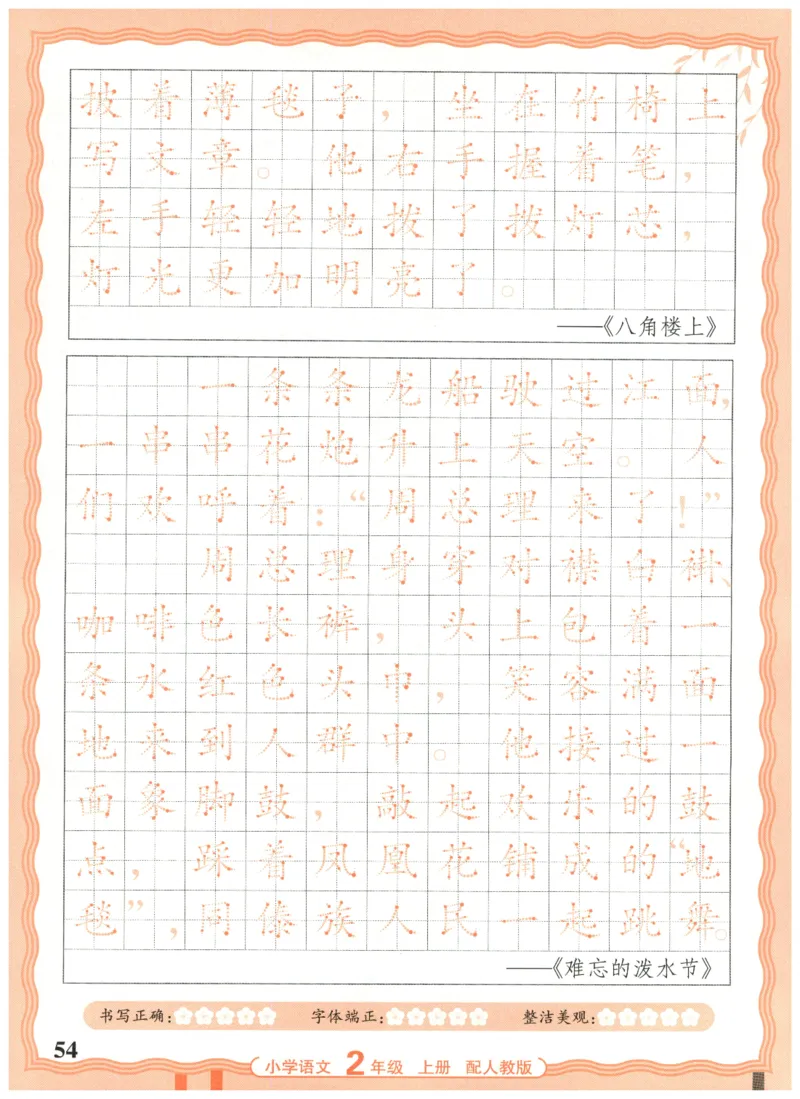 披着薄毯子，坐在竹椅上
写文章。他右手握着笔，
左手轻轻地拨了拨灯芯，
灯光更加明亮了。
——《八角楼上》
一条条龙船驶过江面，
一串串花炮升上天空。人
们欢呼着：“周总理来了！”
周总理身穿对襟白褂、
咖啡色长裤，头上包着一
条水红色头巾，笑容满面
地来到人群中。他接过一
面象脚鼓，敲起欢乐的鼓
点，踩着凤凰花铺成的“地
毯”，同傣族人民一起跳舞。
——《难忘的泼水节》
书写正确： 字体端正： 整洁美观：
54
小学语文 2年级 上册 配人教版